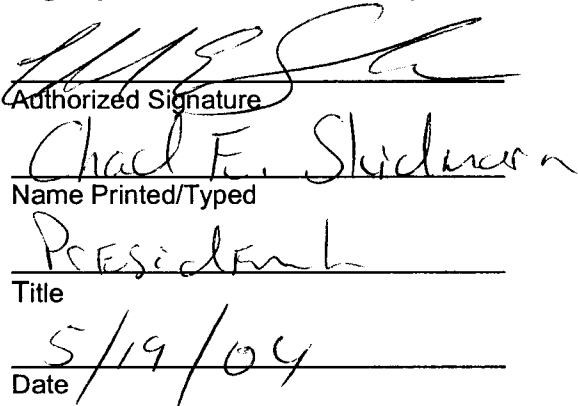 Authorized Signature
Chad E. Skidmore
Name Printed/Typed
President
Title
5/19/04
Date